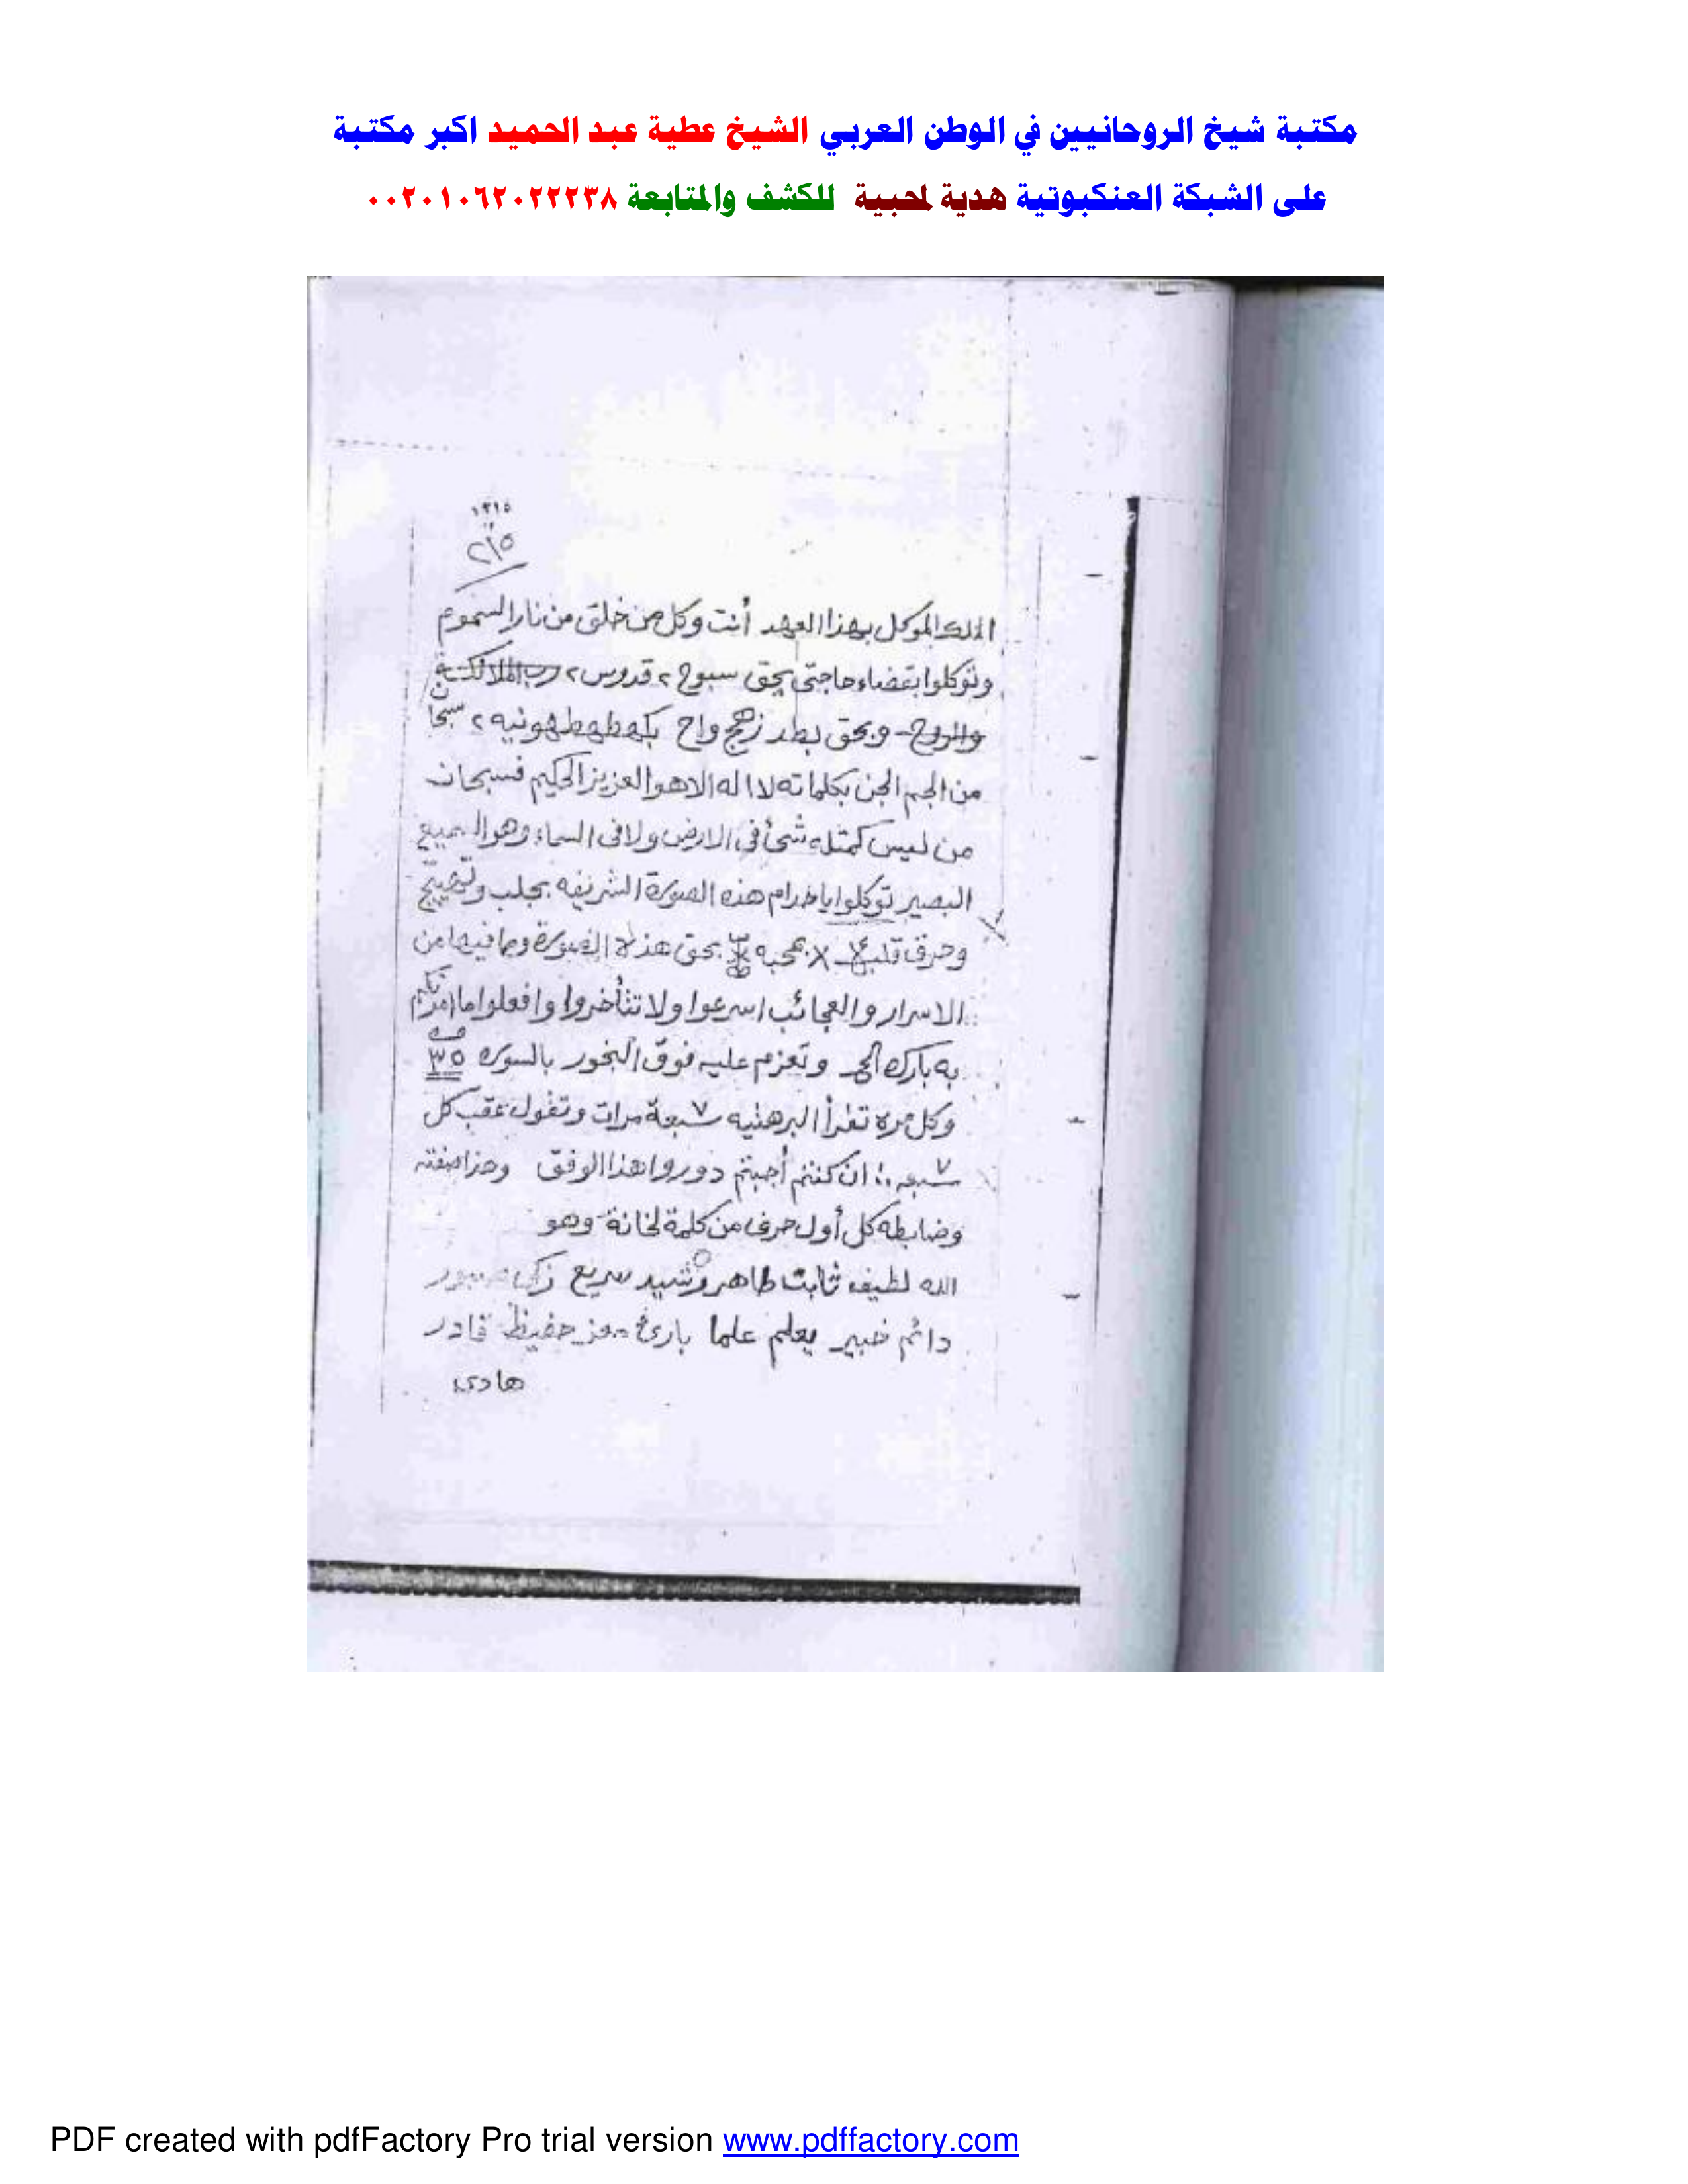 مكتبة شيخ الروحانيين في الوطن العربي الشيخ عطية عبد الحميد اكبر مكتبة
على الشبكة العنكبوتية هدية لمحبية للكشف والمتابعة ٠٠٢٠١٠٦٢٠٢٢٢٣٨
٢١٥
الملك الموكل بهذا العهد أنت وكل من خلق من نار السموم
وتوكلوا بقضاء حاجتى بحق سبوح ٢ قدوس ٢ رب الملائكة
والروح وبحق بطد زهج واح سبحان
من الجم الجن بكلماته لا اله الا هو العزيز الحكيم فسبحان
من ليس كمثله شئ فى الارض ولا فى السماء وهو السميع
البصير توكلوا يا خدام هذه الصورة الشريفه بجلب وتهييج
وحرق قلب بمحبه بحق هذه الصورة وما فيها من
الاسرار والعجائب اسرعوا ولا تتأخروا وافعلوا ما امرتكم
به بارك وتعزم عليه فوق البخور بالسوره ٣٥ مره
وكل مرة تقرأ البرهتيه سبعة ٧ مرات وتقول عقب كل
سبعه ٧ ان كنتم أجبتم دوروا هذا الوفق وهذا صفته
وضابطه كل أول حرف من كلمة لخانة وهو
الله لطيف ثابت طاهر رشيد سريع زكى صبور
دائم خبير يعلم علما بارئ معز حفيظ قادر
هادى
PDF created with pdfFactory Pro trial version www.pdffactory.com